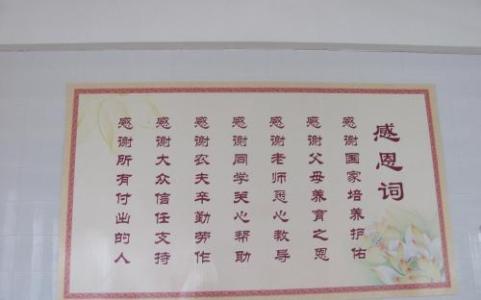 感恩词
感谢国家培养护佑
感谢父母养育之恩
感谢老师悉心教导
感谢同学关心帮助
感谢农夫辛勤劳作
感谢大众信任支持
感谢所有付出的人